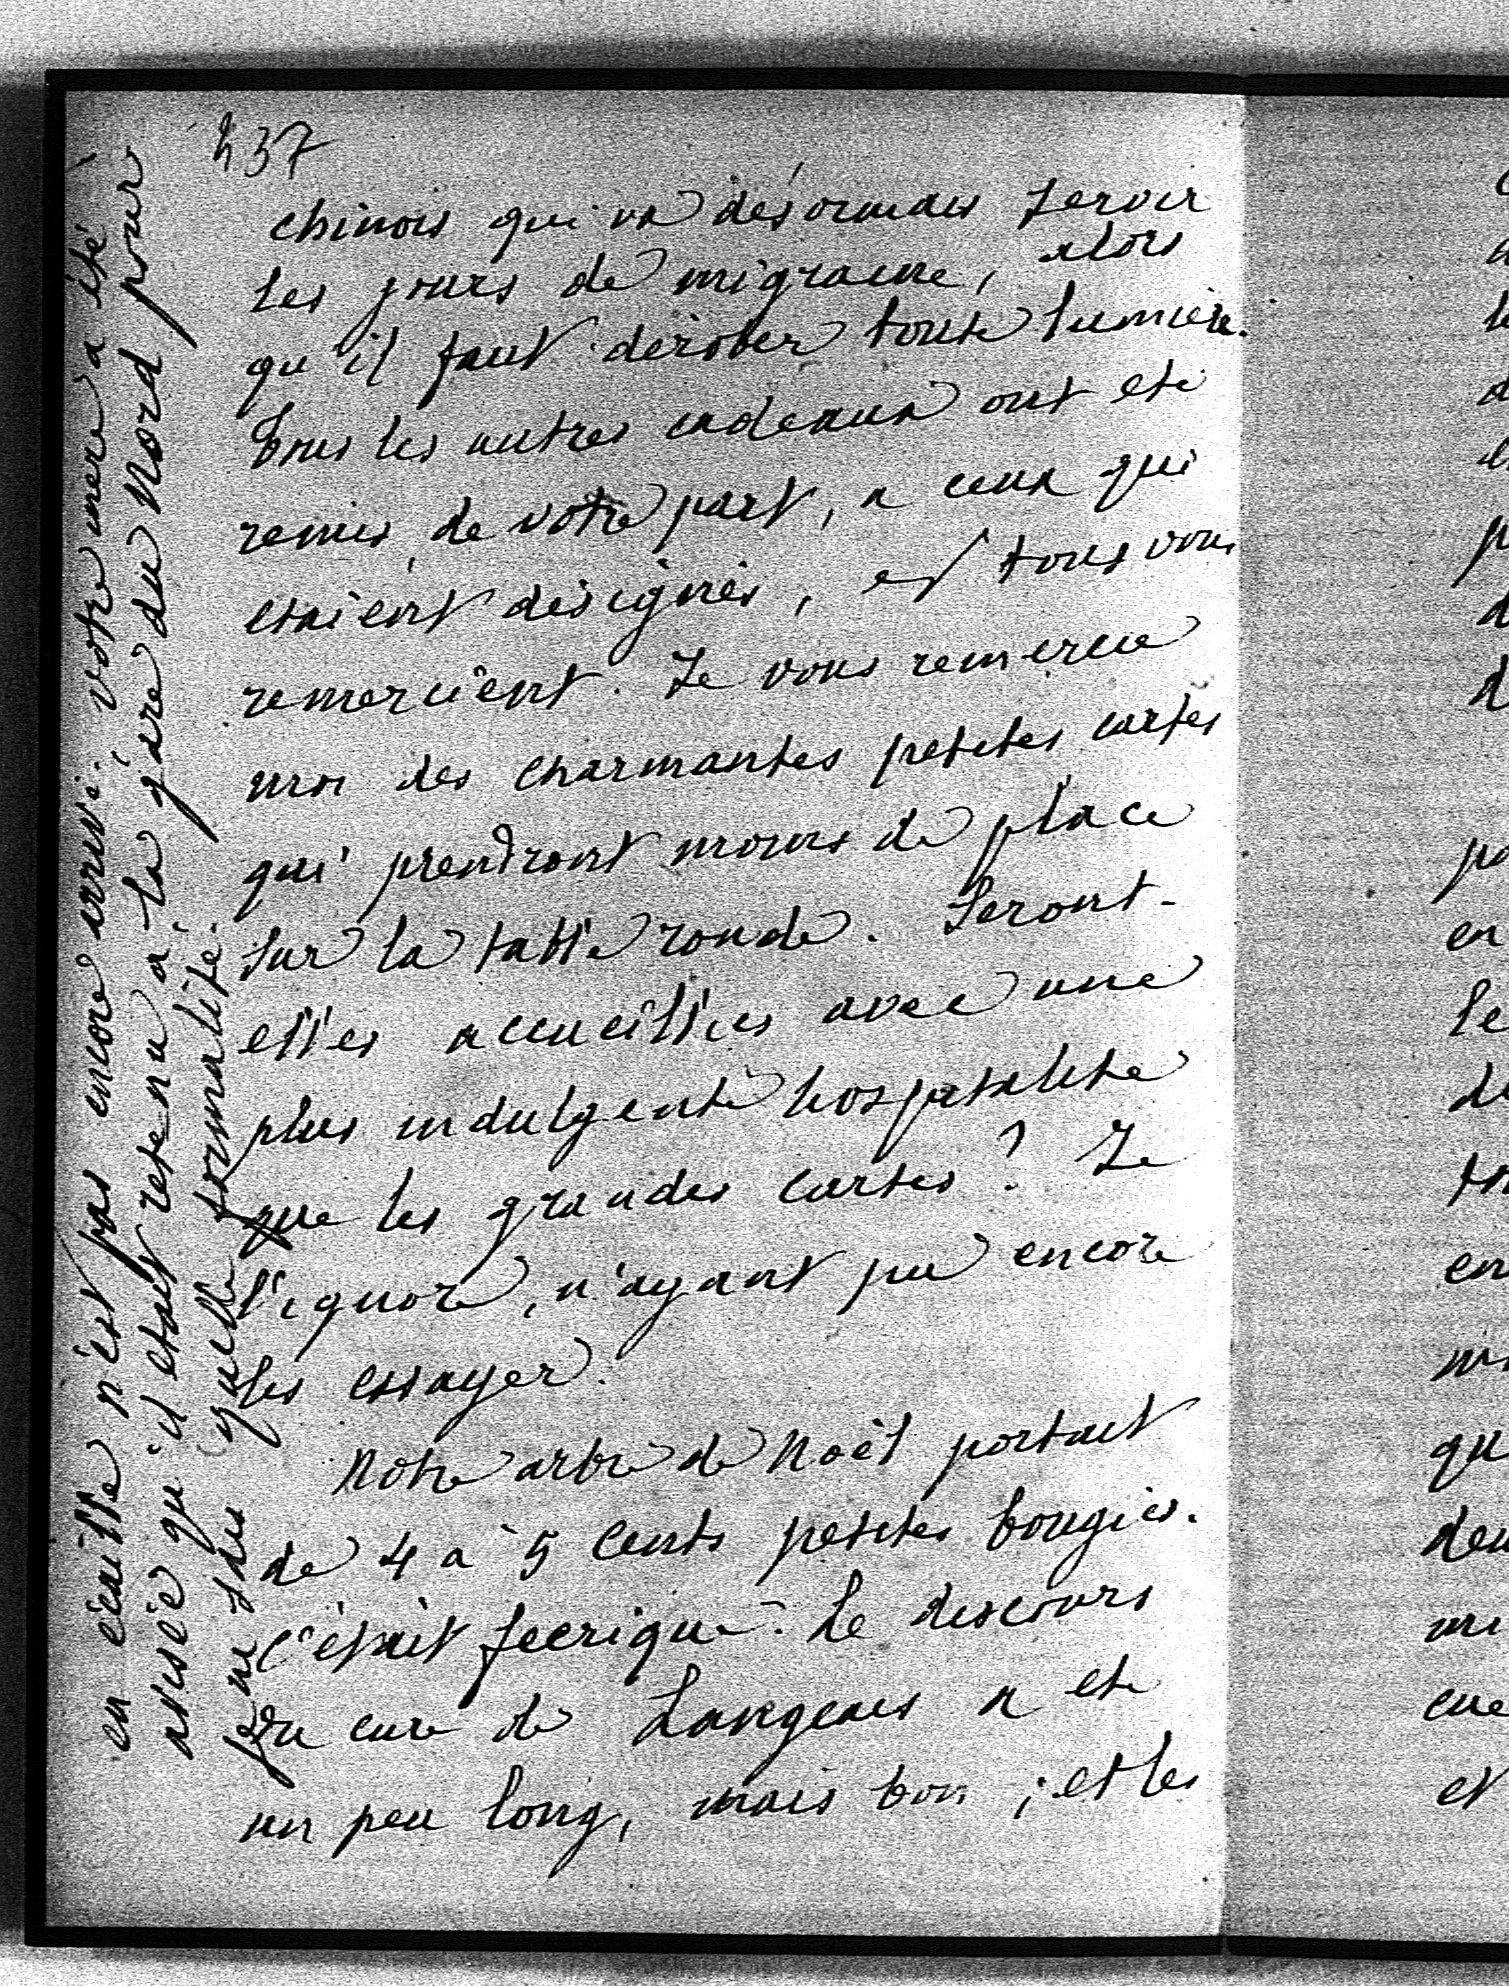 437
chinois qui va désormais servir
les jours de migraine, alors
qu'il faut dérober toute lumière.
Tous les autres cadeaux ont été
remis de votre part, a ceux qui
etaient désignés, et tous vous
remercient. Je vous remercie
moi des charmantes petites cartes
qui prendront moins de place
sur la table ronde. Seront-
elles accueillies avec une
plus indulgente hospitalite
que les grandes cartes ? Je
l'ignore, n'ayant pu encore
les essayer.
Notre arbre de Noël portait
de 4 a 5 cents petites bougies.
C'était feerique. Le discours
du curé de Langeais a ete
un peu long, mais bon ; et les
en écaille n'est pas encore arrivé. votre mere a été
avisée qu'il etait retenu à la gare du Nord pour
je ne sais quelle formalité.